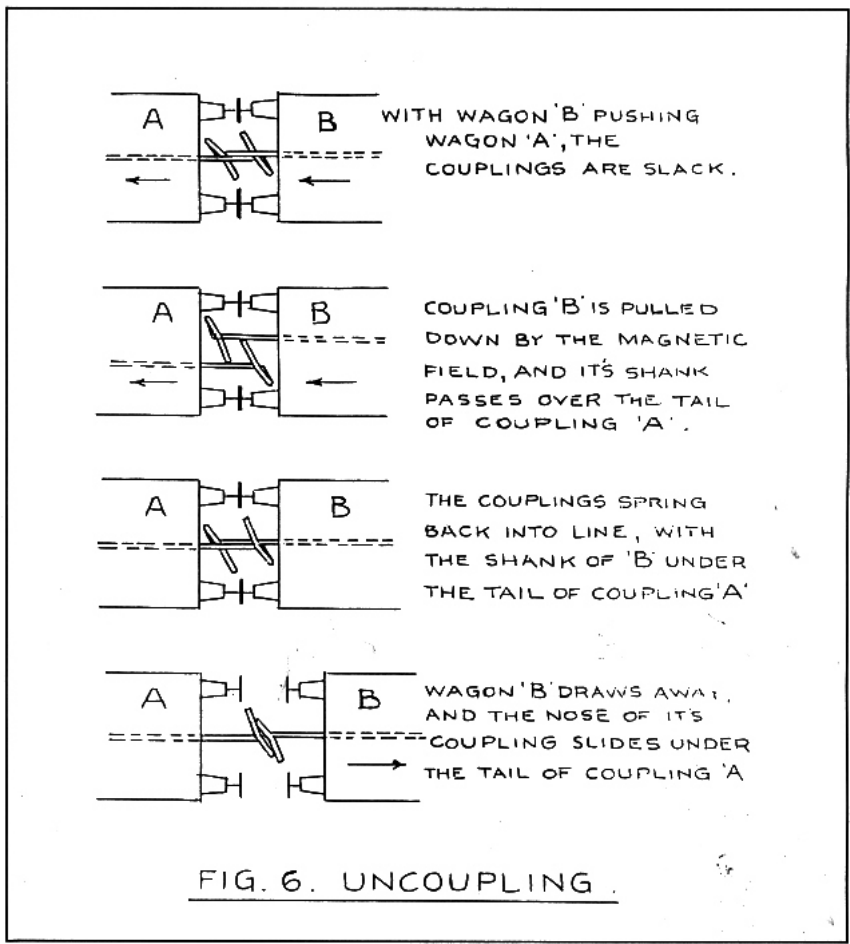 A
B
WITH WAGON 'B' PUSHING
WAGON 'A', THE
COUPLINGS ARE SLACK.
A
B
COUPLING 'B' IS PULLED
DOWN BY THE MAGNETIC
FIELD, AND IT'S SHANK
PASSES OVER THE TAIL
OF COUPLING 'A'.
A
B
THE COUPLINGS SPRING
BACK INTO LINE, WITH
THE SHANK OF 'B' UNDER
THE TAIL OF COUPLING 'A'
A
B
WAGON 'B' DRAWS AWAY,
AND THE NOSE OF IT'S
COUPLING SLIDES UNDER
THE TAIL OF COUPLING 'A
FIG. 6. UNCOUPLING.